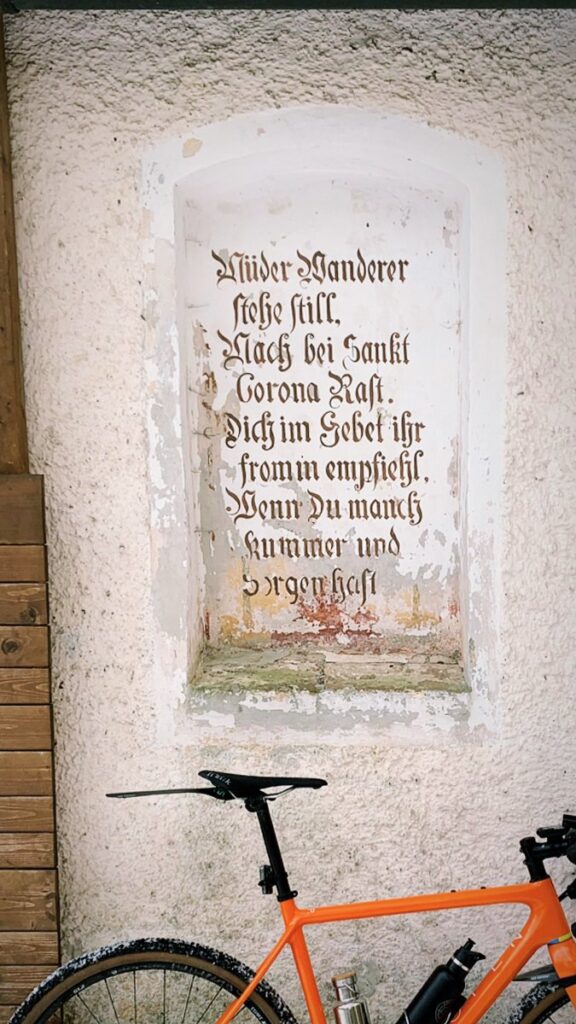 Müder Wanderer
stehe still,
Mach bei Sankt
Corona Rast.
Dich im Gebet ihr
fromm empfiehl,
Wenn Du manch
kummer und
Sorgen hast